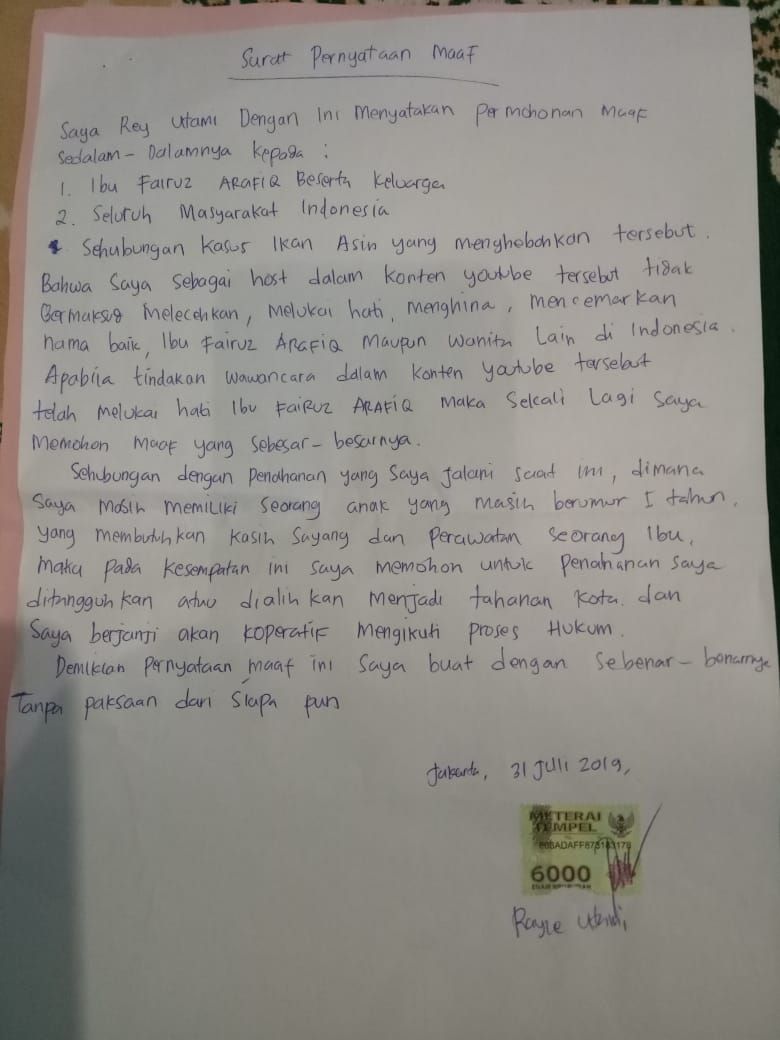 Surat Pernyataan Maaf
Saya Rey Utami Dengan Ini Menyatakan Permohonan Maaf
Sedalam - Dalamnya kepada :
1. Ibu Fairuz ARAFIQ Beserta Keluarga
2. Seluruh Masyarakat Indonesia
Sehubungan Kasus Ikan Asin yang menghebohkan tersebut.
Bahwa Saya Sebagai host dalam konten youtube tersebut tidak
Bermaksud Melecehkan, Melukai hati, menghina, mencemarkan
nama baik, Ibu Fairuz ARAFIQ Maupun Wanita Lain di Indonesia.
Apabila tindakan wawancara dalam konten youtube tersebut
telah melukai hati Ibu FAIRUZ ARAFIQ Maka Sekali Lagi Saya
Memohon Maaf yang Sebesar - besarnya.
Sehubungan dengan Penahanan yang Saya jalani saat ini, dimana
Saya Masih Memiliki Seorang anak yang masih berumur 1 tahun.
yang membutuhkan Kasih Sayang dan Perawatan seorang Ibu,
Maka Pada Kesempatan ini Saya Memohon untuk Penahanan Saya
ditangguhkan atau dialihkan Menjadi tahanan Kota. dan
Saya berjanji akan KoperatiF Mengikuti Proses Hukum.
Demikian Pernyataan maaf ini Saya buat dengan Sebenar - benarnya
Tanpa paksaan dari Siapa pun
Jakarta, 31 Juli 2019,
METERAI
TEMPEL
6000